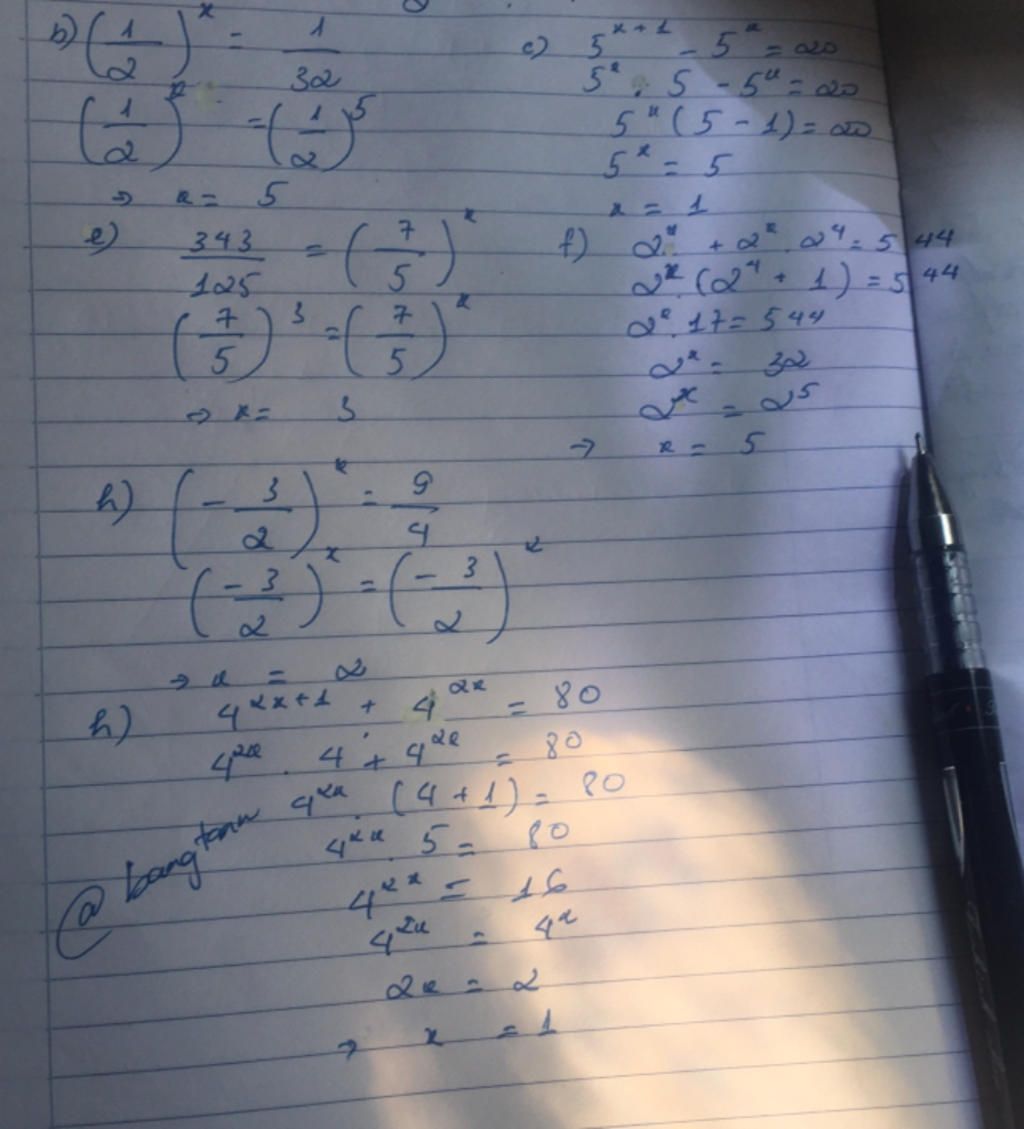 b) (1/2)^x = 1/32
(1/2)^x = (1/2)^5
⇒ x = 5
c) 5^{x+1} - 5^x = 20
5^x . 5 - 5^x = 20
5^x (5 - 1) = 20
5^x = 5
x = 1
e) 343/125 = (7/5)^x
(7/5)^3 = (7/5)^x
⇒ x = 3
f) 2^x + 2^x . 2^4 = 544
2^x . (2^4 + 1) = 544
2^x . 17 = 544
2^x = 32
2^x = 2^5
→ x = 5
h) (-3/2)^x = 9/4
(-3/2)^x = (-3/2)^2
→ x = 2
h) 4^{2x+1} + 4^{2x} = 80
4^{2x} . 4 + 4^{2x} = 80
4^{2x} . (4 + 1) = 80
4^{2x} . 5 = 80
4^{2x} = 16
4^{2x} = 4^2
2x = 2
→ x = 1